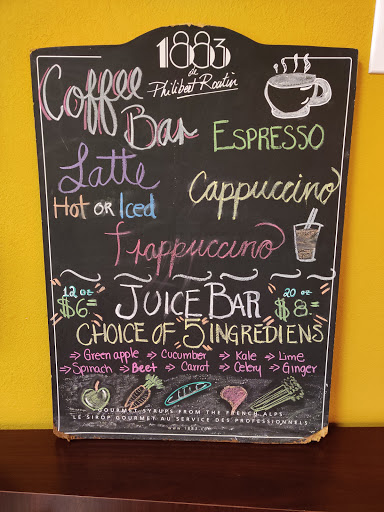 1883
de
Philibert Routin
Coffee
Bar
ESPRESSO
Latte
Cappuccino
Hot OR Iced
frappuccino
12 oz
$6=
JUICE BAR
20 oz
$8=
CHOICE OF 5 INGREDIENS
Green apple Cucumber Kale Lime
Spinach Beet Carrot Celery Ginger
GOURMET SYRUPS FROM THE FRENCH ALPS
LE SIROP GOURMET AU SERVICE DES PROFESSIONNELS
www.1883.com